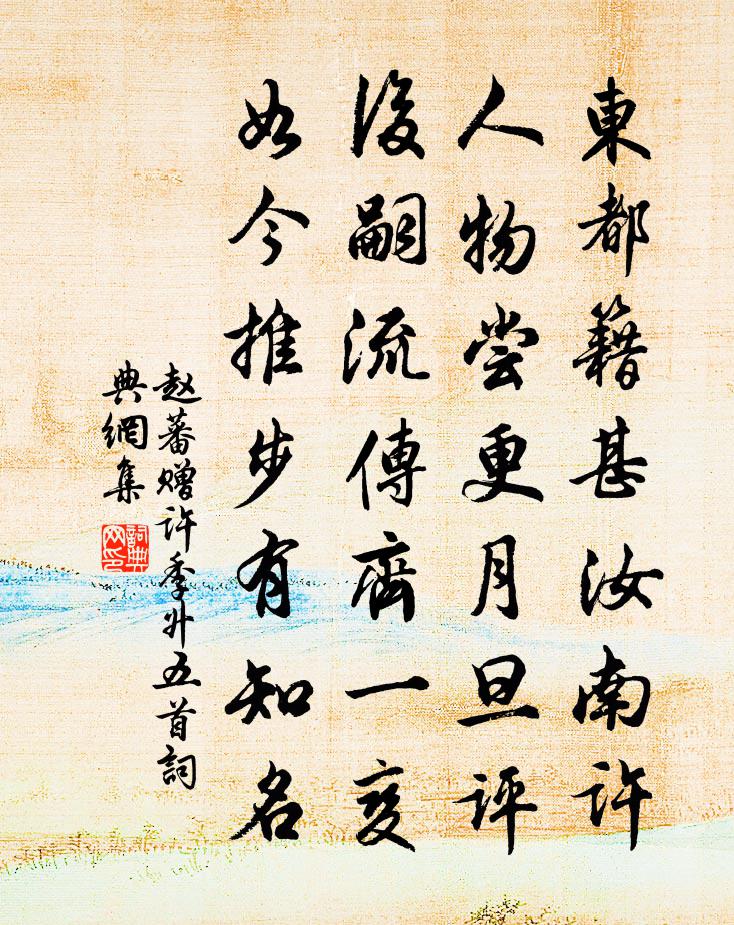 東都籍甚汝南許
人物尝更月旦评
後嗣流傳齊一变
如今推步有知名
赵蕃赠许季升五首詞
典網集
詞典网印